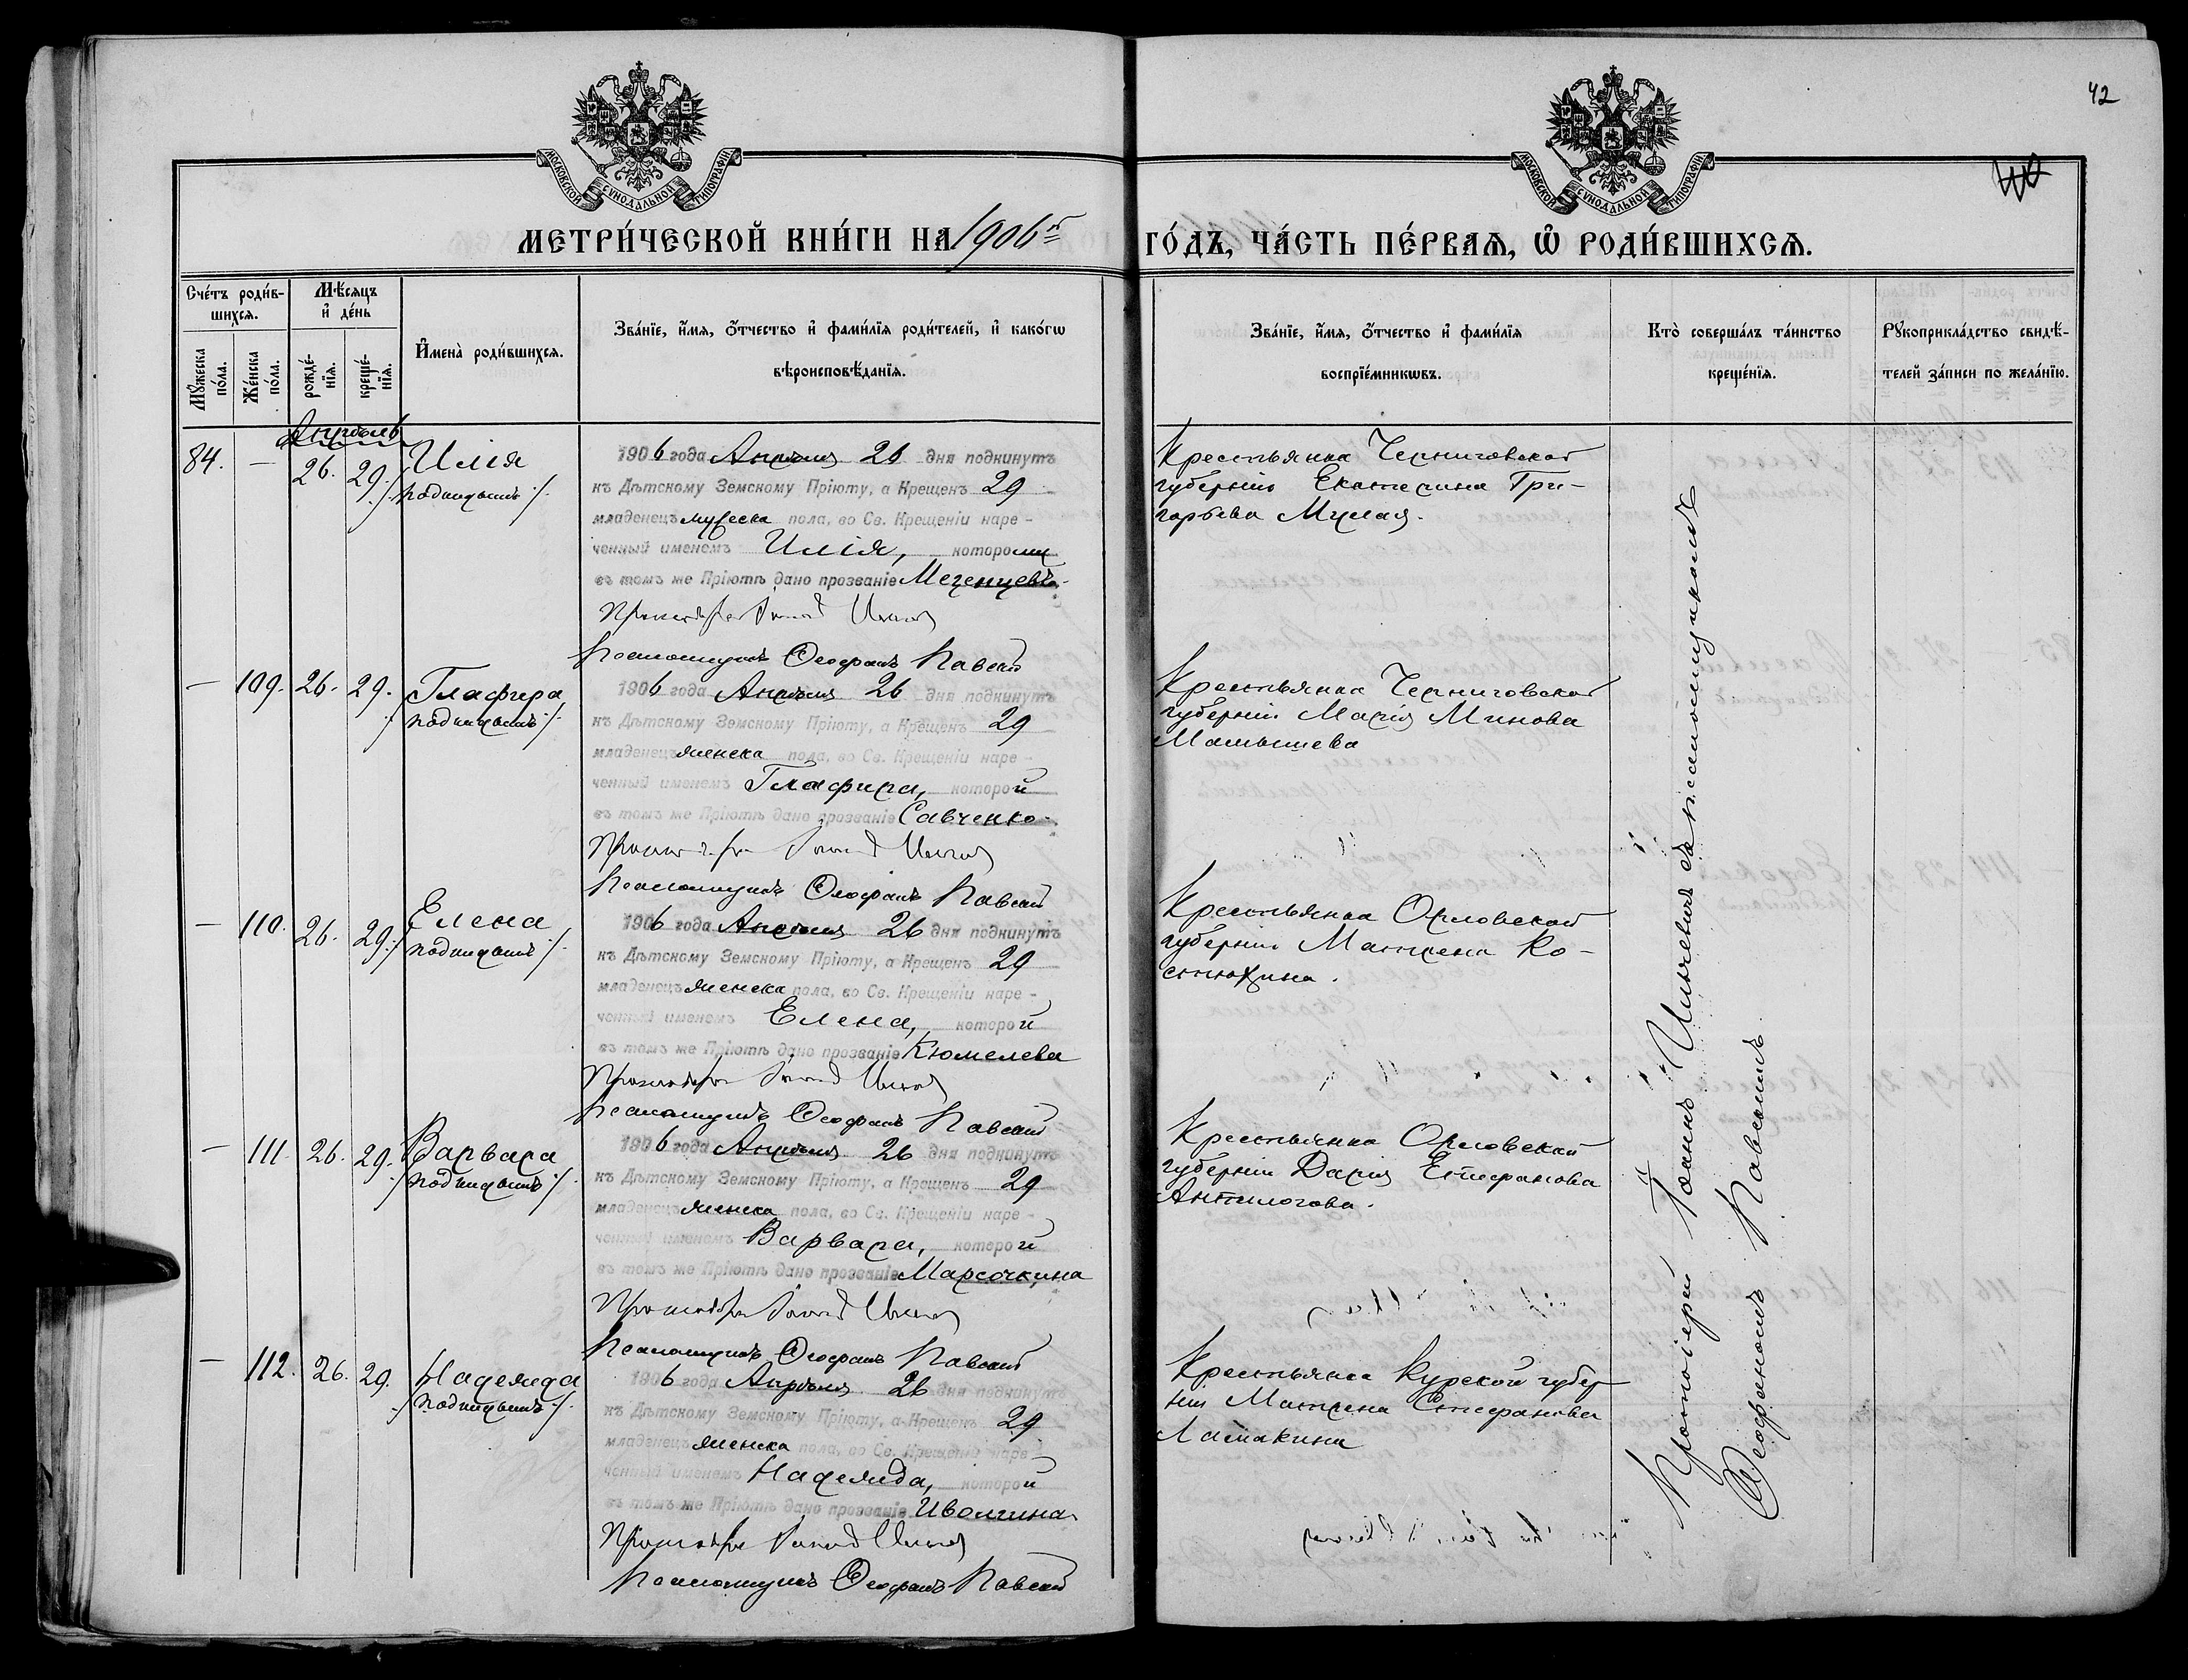 42
МОСКОВСКОЙ СѴНОДАЛЬНОЙ ТИПОГРАФІИ
МОСКОВСКОЙ СѴНОДАЛЬНОЙ ТИПОГРАФІИ
МЕТРИ́ЧЕСКОЙ КНИ́ГИ НА 1906 г. ГО́ДЪ, ЧА́СТЬ ПЕ́РВАѦ, Ѡ҆ РОДИ́ВШИХСѦ.
Сче́тъ роди́в-
шихсѧ.
Мꙋ́жеска по́ла.
Же́нска по́ла.
Мѣ́сѧцъ и҆ де́нь
рожде́-нїѧ.
креще́-нїѧ.
И҆мена̀ роди́вшихсѧ.
Зва́нїе, и҆́мѧ, ѻ҆́тчество и҆ фами́лїѧ роди́телей, и҆ како́гѡ
вѣроисповѣ́данїѧ.
Зва́нїе, и҆́мѧ, ѻ҆́тчество и҆ фами́лїѧ
воспрїе́мникѡвъ.
Кто̀ соверша́лъ та́инство
креще́нїѧ.
Рꙋкоприкла́дство свидѣ́-
телей за́писи по жела́нїю.
Апрѣль
84. — 26. 29. Илія
/подкидышъ/.
1906 года Апрѣля 26 дня подкинутъ
къ Дѣтскому Земскому Пріюту, а Крещенъ 29
младенецъ мужеска пола, во Св. Крещеніи наре-
ченный именемъ Илія, которому
въ томъ же Пріютѣ дано прозваніе Мезенцевъ.
Протоіерей Іоаннъ
Псаломщикъ Ѳеофанъ Павскій
Крестьянка Черниговской
губерніи Екатерина Гри-
горьева
— 109. 26. 29. Глафира,
/подкидышъ/.
1906 года Апрѣля 26 дня подкинутъ
къ Дѣтскому Земскому Пріюту, а Крещенъ 29
младенецъ женска пола, во Св. Крещеніи наре-
ченный именемъ Глафира, которой
въ томъ же Пріютѣ дано прозваніе Савченко.
Протоіерей Іоаннъ
Псаломщикъ Ѳеофанъ Павскій
Крестьянка Черниговской
губерніи Марія Минова
Малышева
— 110. 26. 29. Елена
/подкидышъ/.
1906 года Апрѣля 26 дня подкинутъ
къ Дѣтскому Земскому Пріюту, а Крещенъ 29
младенецъ женска пола, во Св. Крещеніи наре-
ченный именемъ Елена, которой
въ томъ же Пріютѣ дано прозваніе Кюмелева
Протоіерей Іоаннъ
Псаломщикъ Ѳеофанъ Павскій
Крестьянка Орловской
губерніи Матрена Ко-
стюхина.
— 111. 26. 29. Варвара
/подкидышъ/.
1906 года Апрѣля 26 дня подкинутъ
къ Дѣтскому Земскому Пріюту, а Крещенъ 29
младенецъ женска пола, во Св. Крещеніи наре-
ченный именемъ Варвара, которой
въ томъ же Пріютѣ дано прозваніе Марсочкина
Протоіерей Іоаннъ
Псаломщикъ Ѳеофанъ Павскій
Крестьянка Орловской
губерніи Дарія Епифанова
— 112. 26. 29. Надежда
/подкидышъ/.
1906 года Апрѣля 26 дня подкинутъ
къ Дѣтскому Земскому Пріюту, а Крещенъ 29
младенецъ женска пола, во Св. Крещеніи наре-
ченный именемъ Надежда, которой
въ томъ же Пріютѣ дано прозваніе Иволгина
Протоіерей Іоаннъ
Псаломщикъ Ѳеофанъ Павскій
Крестьянка Курской губер-
ніи Матрена Стефанова
Ламакина
Протоіерей Іоаннъ съ псаломщикомъ
Ѳеофаномъ Павскимъ.